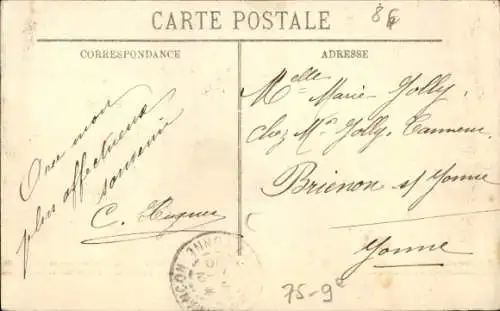 CARTE POSTALE
86
CORRESPONDANCE
ADRESSE
Avec mon
plus affectueux
souvenir
C. Hugues
Melle Marie Jolly,
chez Mr Jolly, Tanneur
Brienon s/ Yonne
Yonne
75-9e